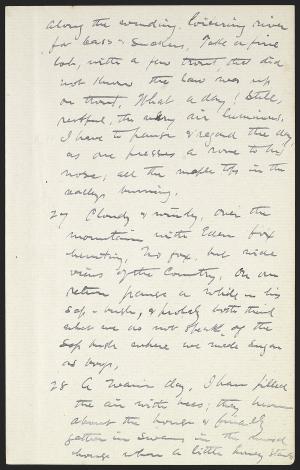 along the winding, loitering river
for bass & suckers. Take a fine
lot, with a few trout, tho' did
not know the law was up
on trout. What a day! Still,
restful, the very air luminous.
I have to pause & regard the day
as one presses a rose to his
nose; all the maple tops in the
valleys burning.
27 Cloudy & windy, over the
mountain with Eden fox
hunting. No fox, but wide
views of the Country. On our
return pause a while in his
sap-bush, & probably both think
what we do not speak, of the
Sap bush where we made Sugar
as boys.
28 A warm day, I have filled
the air with bees; they hum
about the house & finally
gather in swarms in the wood
house where a little honey stands